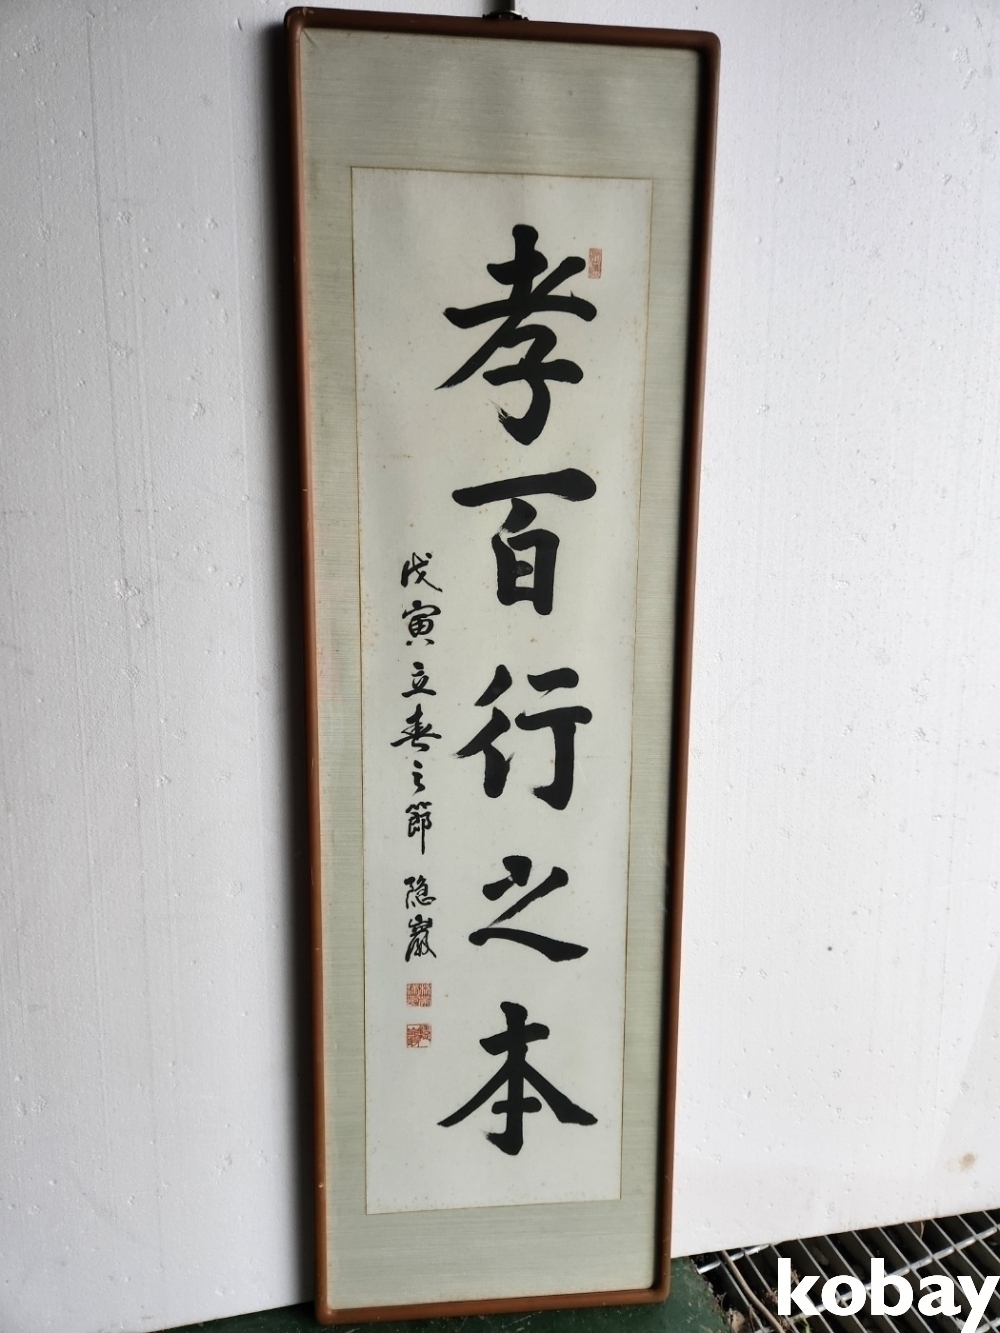 孝百行之本
戊寅立春之節 隐巖
kobay